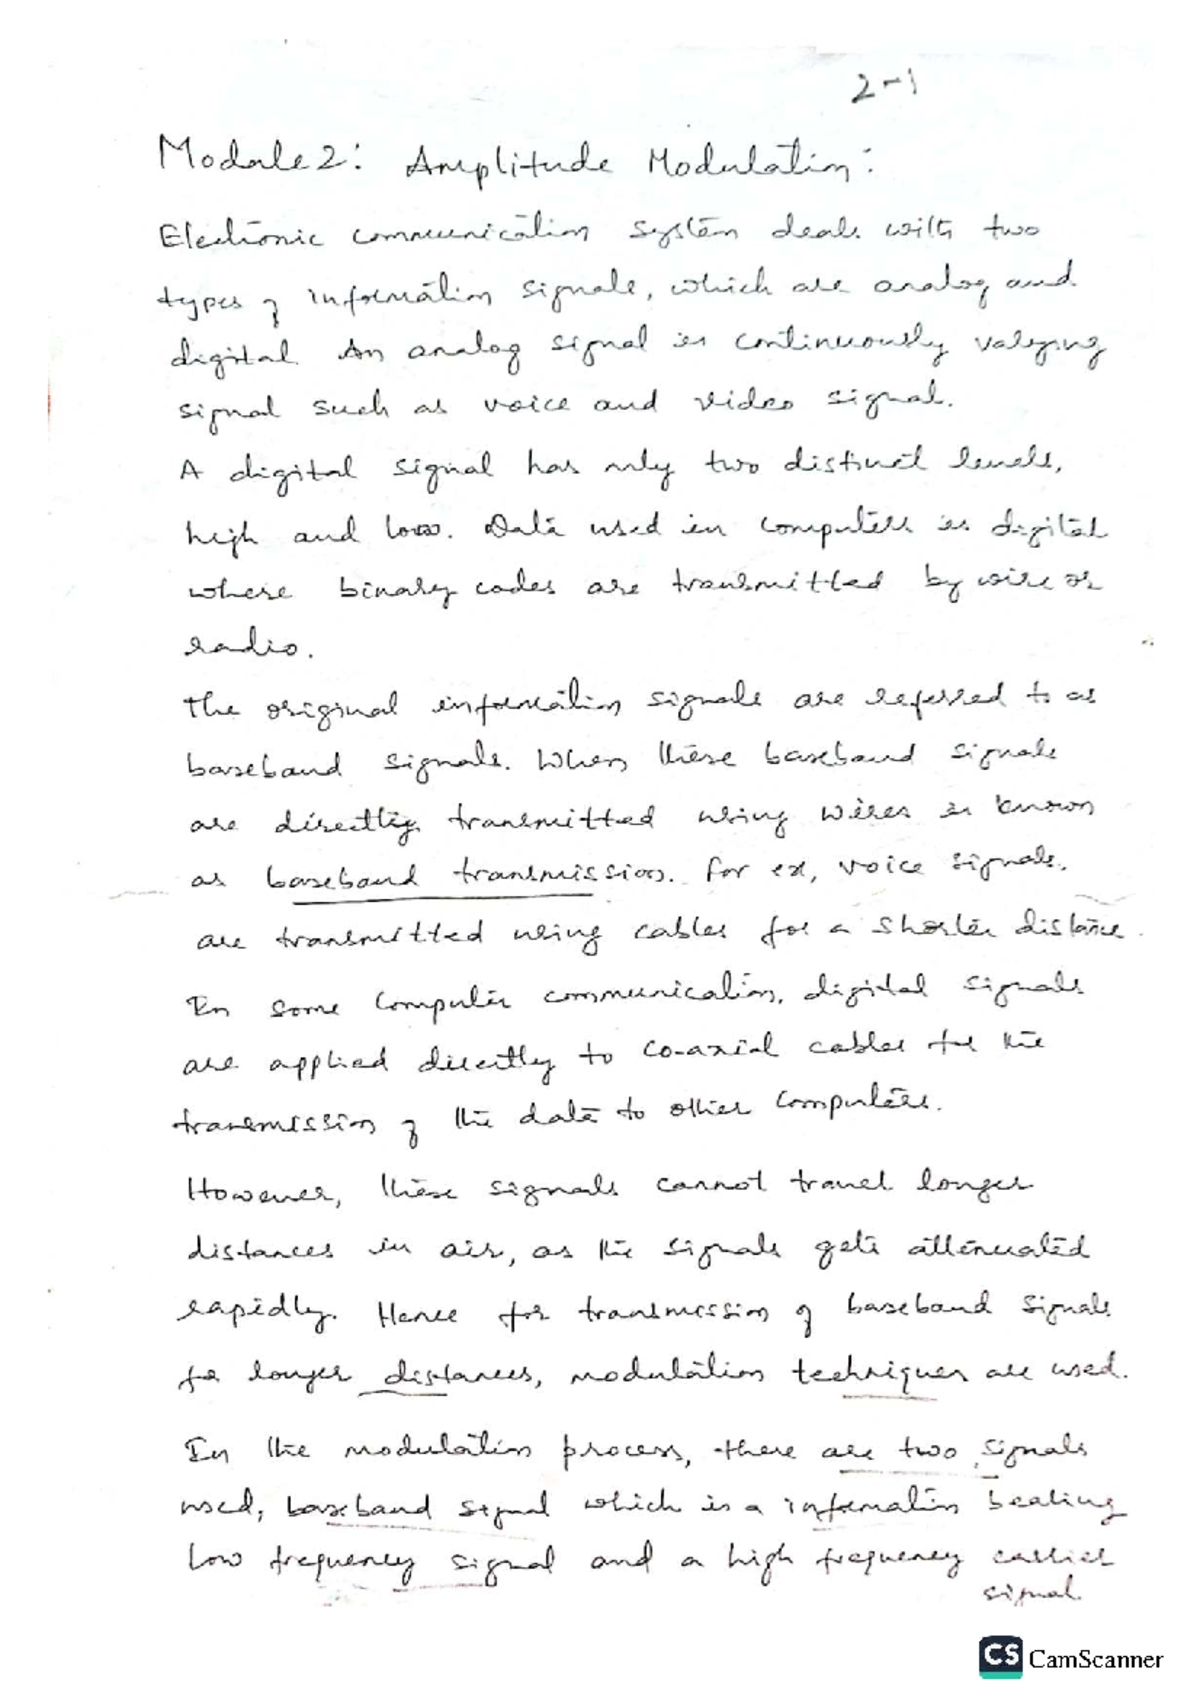 2-1
Module 2: Amplitude Modulation:
Electronic communication system deals with two
types of information signals, which are analog and
digital. An analog signal is continuously varying
signal such as voice and video signal.
A digital signal has only two distinct levels,
high and low. Data used in computers is digital
where binary codes are transmitted by wire or
radio.
The original information signals are referred to as
baseband signals. When these baseband signals
are directly transmitted using wires is known
as baseband transmission. For ex, voice signals.
are transmitted using cables for a shorter distance.
In some computer communication, digital signals
are applied directly to co-axial cables for the
transmission of the data to other computers.
However, these signals cannot travel longer
distances in air, as the signals gets attenuated
rapidly. Hence for transmission of baseband signals
for longer distances, modulation techniques are used.
In the modulation process, there are two signals
used, baseband signal which is a information bearing
low frequency signal and a high frequency carrier
signal.
CS CamScanner